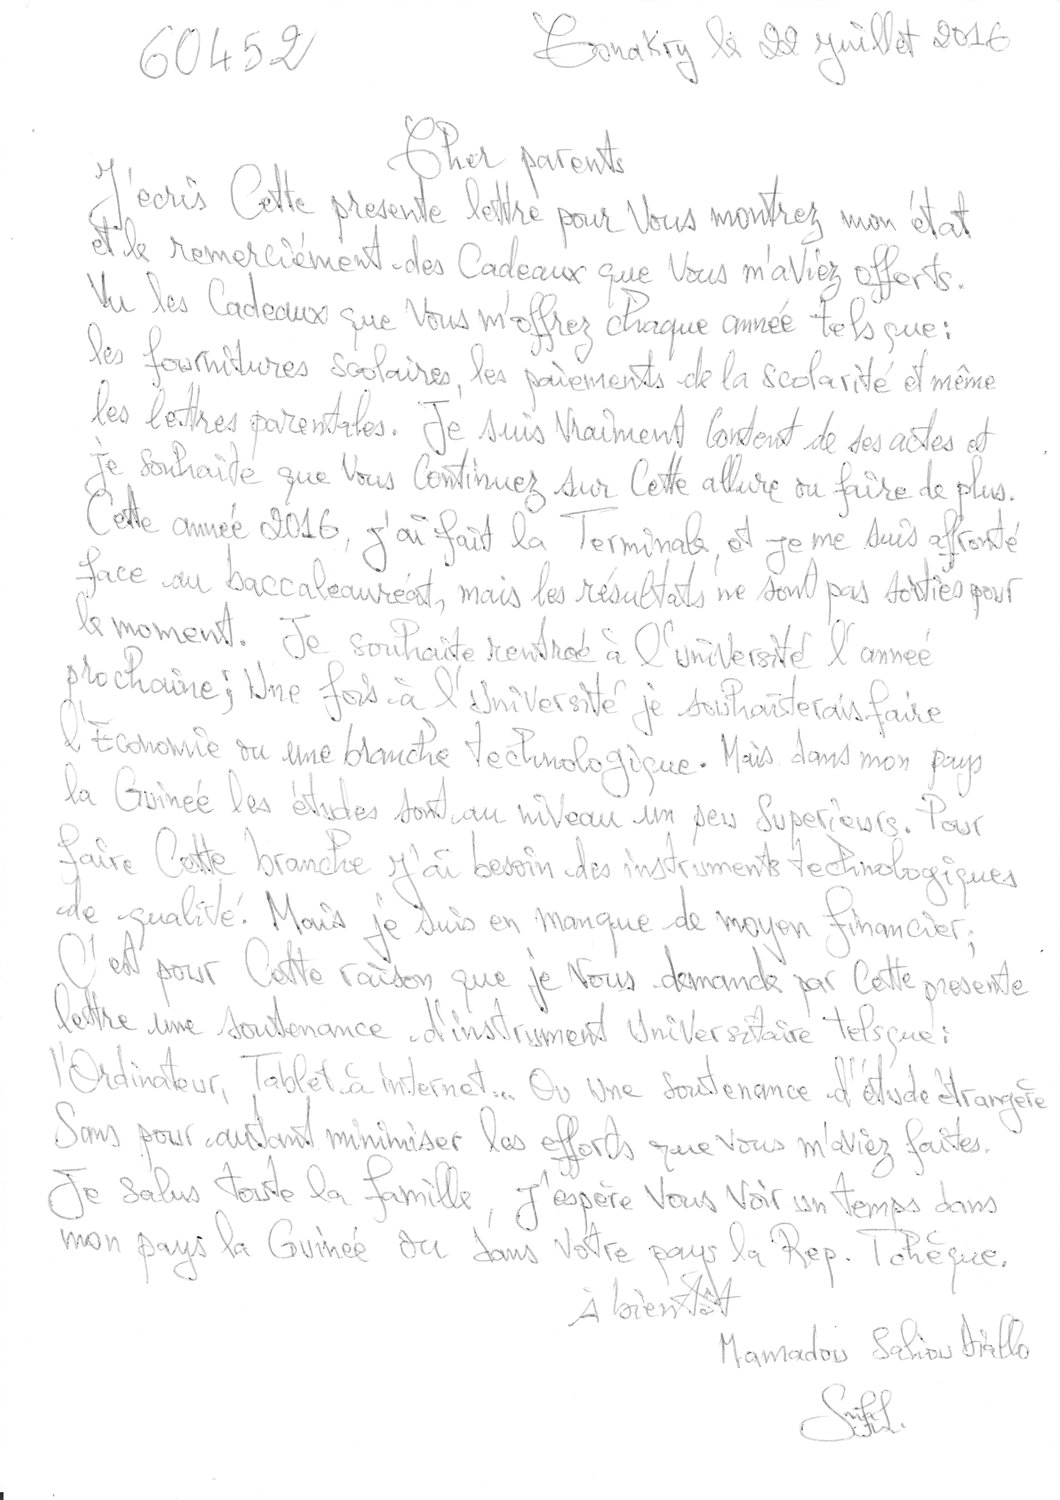 60452
Conakry le 22 juillet 2016
Cher parents
J'ecris Cette presente lettre pour Vous montrez mon état
et le remerciément des Cadeaux que Vous m'aviez offerts.
Vu les Cadeaux que Vous m'offrez chaque année telsque:
les fournitures scolaires, les paiements de la scolarité et même
les lettres parentales. Je suis Vraiment Content de ses actes et
je souhaite que Vous Continuez sur Cette allure ou faire de plus.
Cette année 2016, j'ai fait la Terminale, et je me suis affronté
face au baccaleauréat, mais les résultats ne sont pas sorties pour
le moment. Je souhaite rentrée à l'université l'année
prochaine; Une fois à l'Université je souhaiterais faire
l'Economie ou une branche technologique. Mais dans mon pays
la Guineé les études sont au niveau un peu Superieurs. Pour
faire Cette branche j'ai besoin des instruments technologiques
de qualité. Mais je suis en manque de moyen financier;
C'est pour Cette raison que je Vous demande par Cette presente
lettre une soutenance d'instrument Universitaire telsque:
l'Ordinateur, Tablet à internet... Ou une soutenance d'étude étrangère
Sans pour autant minimiser les efforts que vous m'aviez faites.
Je salus toute la famille, J'espère Vous Voir un temps dans
mon pays la Guineé ou dans Votre pays la Rep. Tchèque.
À bientôt
Mamadou Saliou Diallo